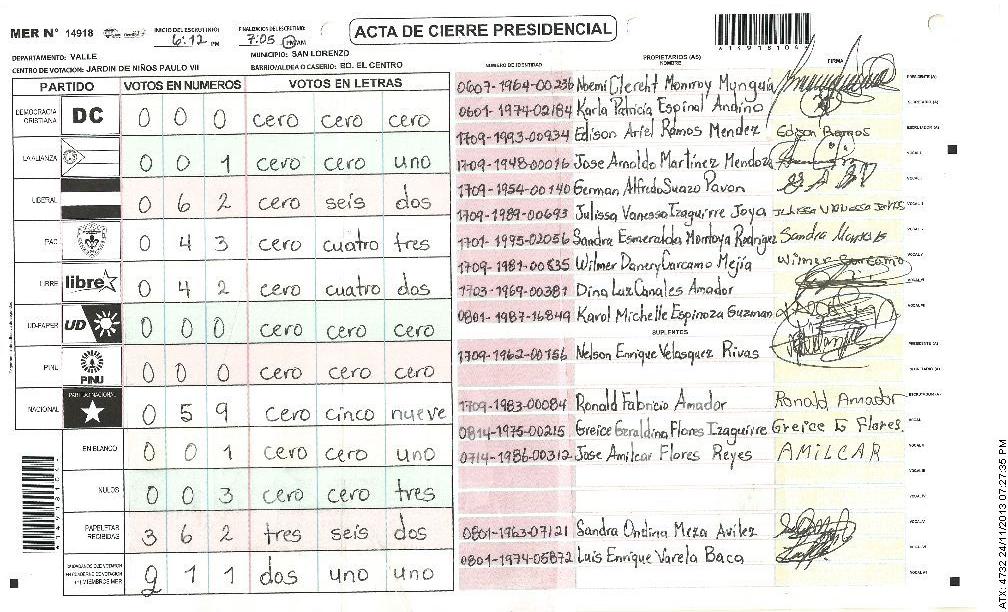 MER N° 14918
INICIO DEL ESCRUTINIO: 6:12 PM
FINALIZACION DEL ESCRUTINIO: 7:05 PM AM
ACTA DE CIERRE PRESIDENCIAL
DEPARTAMENTO: VALLE
MUNICIPIO: SAN LORENZO
CENTRO DE VOTACION: JARDIN DE NIÑOS PAULO VII
BARRIO/ALDEA O CASERIO: BO. EL CENTRO
PARTIDO VOTOS EN NUMEROS VOTOS EN LETRAS
DEMOCRACIA CRISTIANA DC 0 0 0 cero cero cero
LA ALIANZA 0 0 1 cero cero uno
LIBERAL 0 6 2 cero seis dos
PAC 0 4 3 cero cuatro tres
LIBRE libre 0 4 2 cero cuatro dos
UD-FAPER UD 0 0 0 cero cero cero
PINU PINU 0 0 0 cero cero cero
NACIONAL PARTIDO NACIONAL 0 5 9 cero cinco nueve
EN BLANCO 0 0 1 cero cero uno
NULOS 0 0 3 cero cero tres
PAPELETAS RECIBIDAS 3 6 2 tres seis dos
2 1 1 dos uno uno
NUMERO DE IDENTIDAD PROPIETARIOS (AS) NOMBRE FIRMA
0607-1964-00236 Noemi Clereht Monroy Munguia PRESIDENTE (A)
0601-1974-02184 Karla Patricia Espinal Andino SECRETARIO (A)
1709-1993-00934 Edison Ariel Ramos Mendez Edison Ramos ESCRUTADOR (A)
1709-1948-00016 Jose Arnoldo Martínez Mendoza VOCAL I
1709-1954-00140 German Alfredo Suazo Pavon
1709-1989-00693 Julissa Vanessa Izaguirre Joya
1701-1995-02056 Sandra Esmeralda Montoya Rodriguez
1709-1981-00835 Wilmer Danery Carcamo Mejía Wilmer Carcamo
1703-1969-00381 Dina Luz Canales Amador
0801-1987-16849 Karol Michelle Espinoza Guzman
SUPLENTES
1709-1962-00156 Nelson Enrique Velasquez Rivas PRESIDENTE (A)
SECRETARIO (A)
1709-1983-00084 Ronald Fabricio Amador Ronald Amador ESCRUTADOR (A)
0814-1975-00215 Greice Geraldina Flores Izaguirre Greice G Flores.
0714-1986-00312 Jose Amilcar Flores Reyes AMILCAR
0801-1963-07121 Sandra Ondina Meza Avilez
0801-1974-05872 Luis Enrique Varela Baca
ATX: 4732 24/11/2013 07:27:35 PM